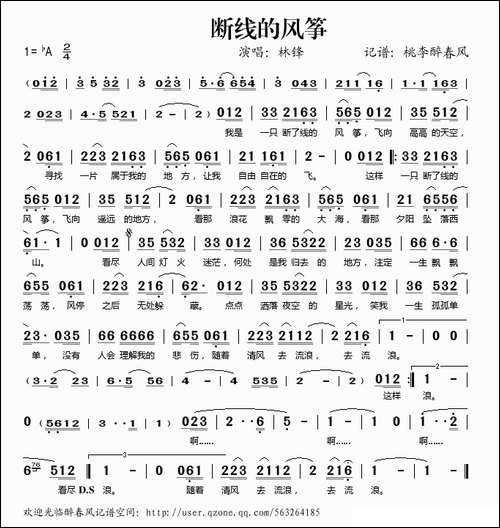 断线的风筝
1=♭A 2/4 演唱:林锋 记谱:桃李醉春风
(012 | 3 532 | 3 023 | 5·6 654 | 3 043 | 211 16 | 1·1 163
2 023 | 4·5 521 | 2 - | 2)012 | 33 2163 | 565 012 | 35 512
我是 一只 断了线的 风 筝,飞向 高高 的天空,
2 061 | 223 2163 | 565 061 | 21 161 | 2 - | 2 012 ‖: 33 2163
寻找 一片 属于我的 地 方,让我 自由 自在的 飞。 这样 一只 断了线的
565 012 | 35 512 | 2 061 | 223 2163 | 565 061 | 223 2165
风 筝,飞向 遥远 的地方, 看那 浪花 飘 零的 大 海,看那 夕阳 坠 落西
61·1 | 0 012 | 35 532 | 33 012 | 36 5322 | 23 035 | 66 6·6
山。 看尽 人间 灯 火 迷茫,何处 是我 归去 的 地方,注定 一生 飘飘
655 035 | 223 216 | 62· 012 | 36 5322 | 23 035 | 66 665
荡 荡,风停 之后 无处躲 蔽。 点点 洒落 夜空 的 星光,笑我 一生 孤孤单
23· 035 | 66 6666 | 655 061 | 223 2112 | 2 216 | 1 - | 0 0
单, 没有 人会 理解我的 悲 伤,随着 清风 去 流浪, 去 流 浪。
(3·2 23 | 6·5 56 | 4 - | 4 - | 535 2 - | 2) 012 :‖ 1 -
这样 浪。
0 (5612 | 3 ··1 1) | 023 | 2··6 | 5 - | 5 - | 0 0 | 1 ··2
啊...... 啊......
6 512 | 1 - | 0 061 | 223 2112 | 2 216 | 1 - | 1 - ‖
看尽 D.S 浪。 随着 清风 去 流浪, 去 流 浪。
欢迎光临醉春风记谱空间: http://user.qzone.qq.com/563264185